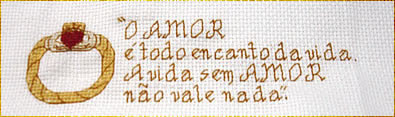 "O AMOR
é todo encanto da vida.
A vida sem AMOR
não vale nada".